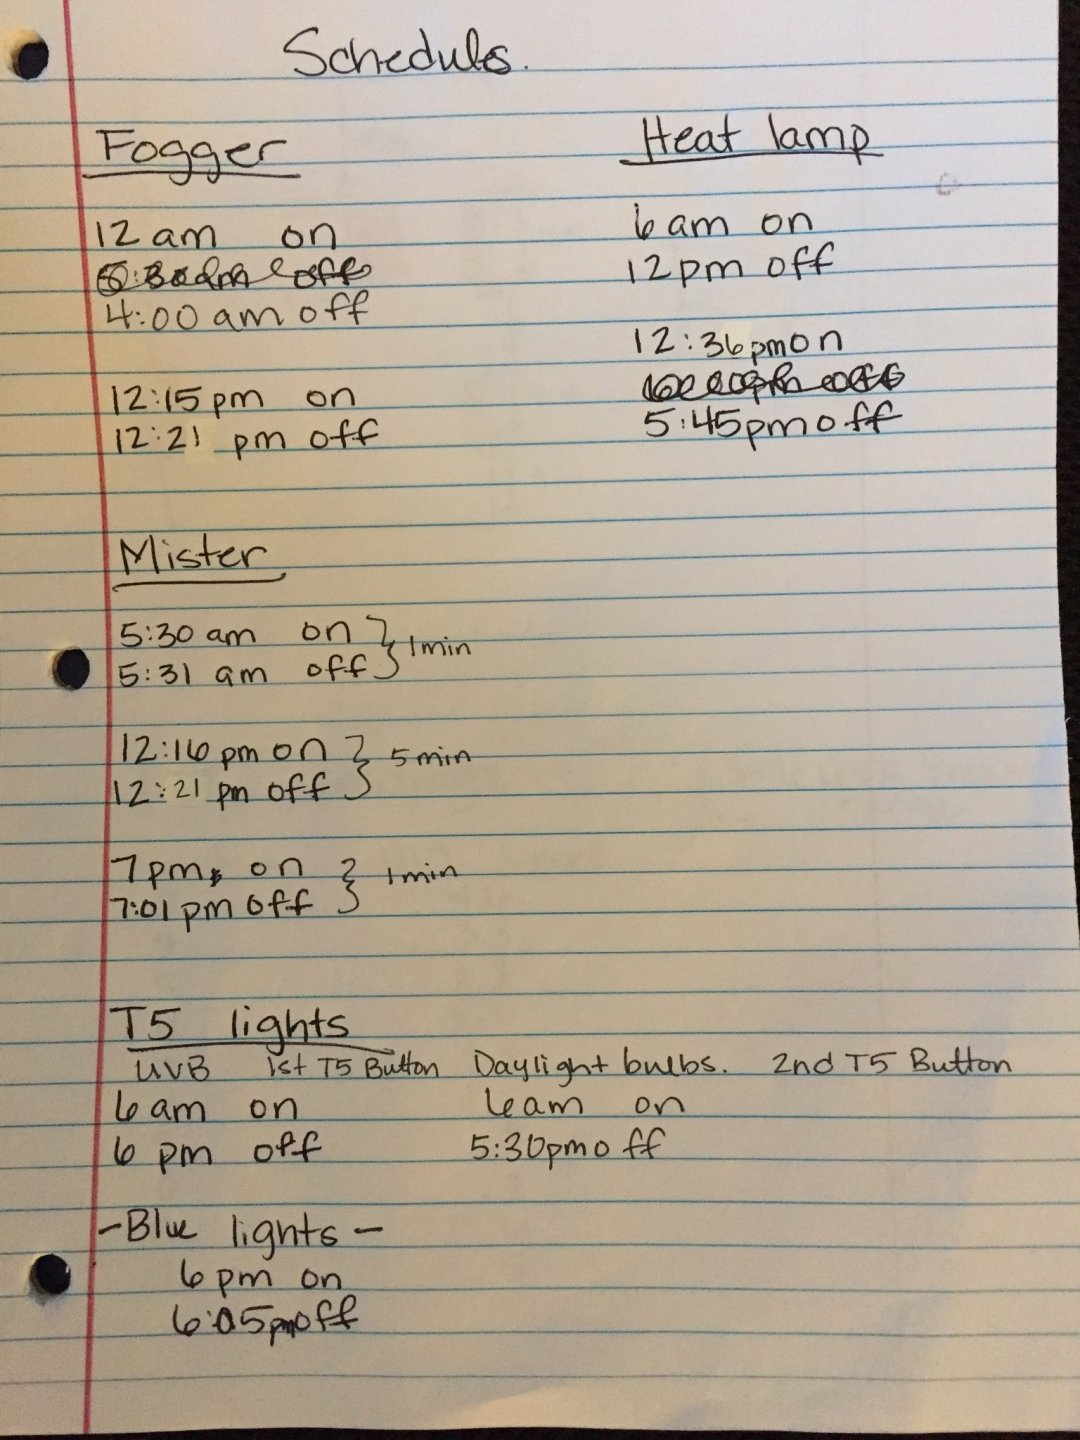 Schedule.
Fogger
12 am on
4:00 am off
12:15 pm on
12:21 pm off
Heat lamp
6 am on
12 pm off
12:36 pm on
5:45 pm off
Mister
5:30 am on } 1 min
5:31 am off
12:16 pm on } 5 min
12:21 pm off
7 pm on } 1 min
7:01 pm off
T5 lights
UVB 1st T5 Button Daylight bulbs. 2nd T5 Button
6 am on 6 am on
6 pm off 5:30 pm off
- Blue lights -
6 pm on
6:05 pm off